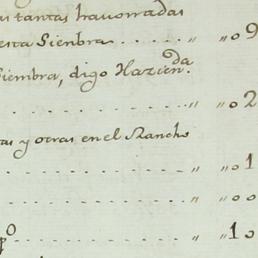 as tantas havorradas
esta Sienbra . . . . . " " o 9
Siembra, digo Hazienda.
. . . . . . . . . . " " o 2
tas y otras en el Rancho
. . . . . . . . . . " " o 1
. . . . . . . . . . " " o o
po . . . . . . . . . " " 1 o